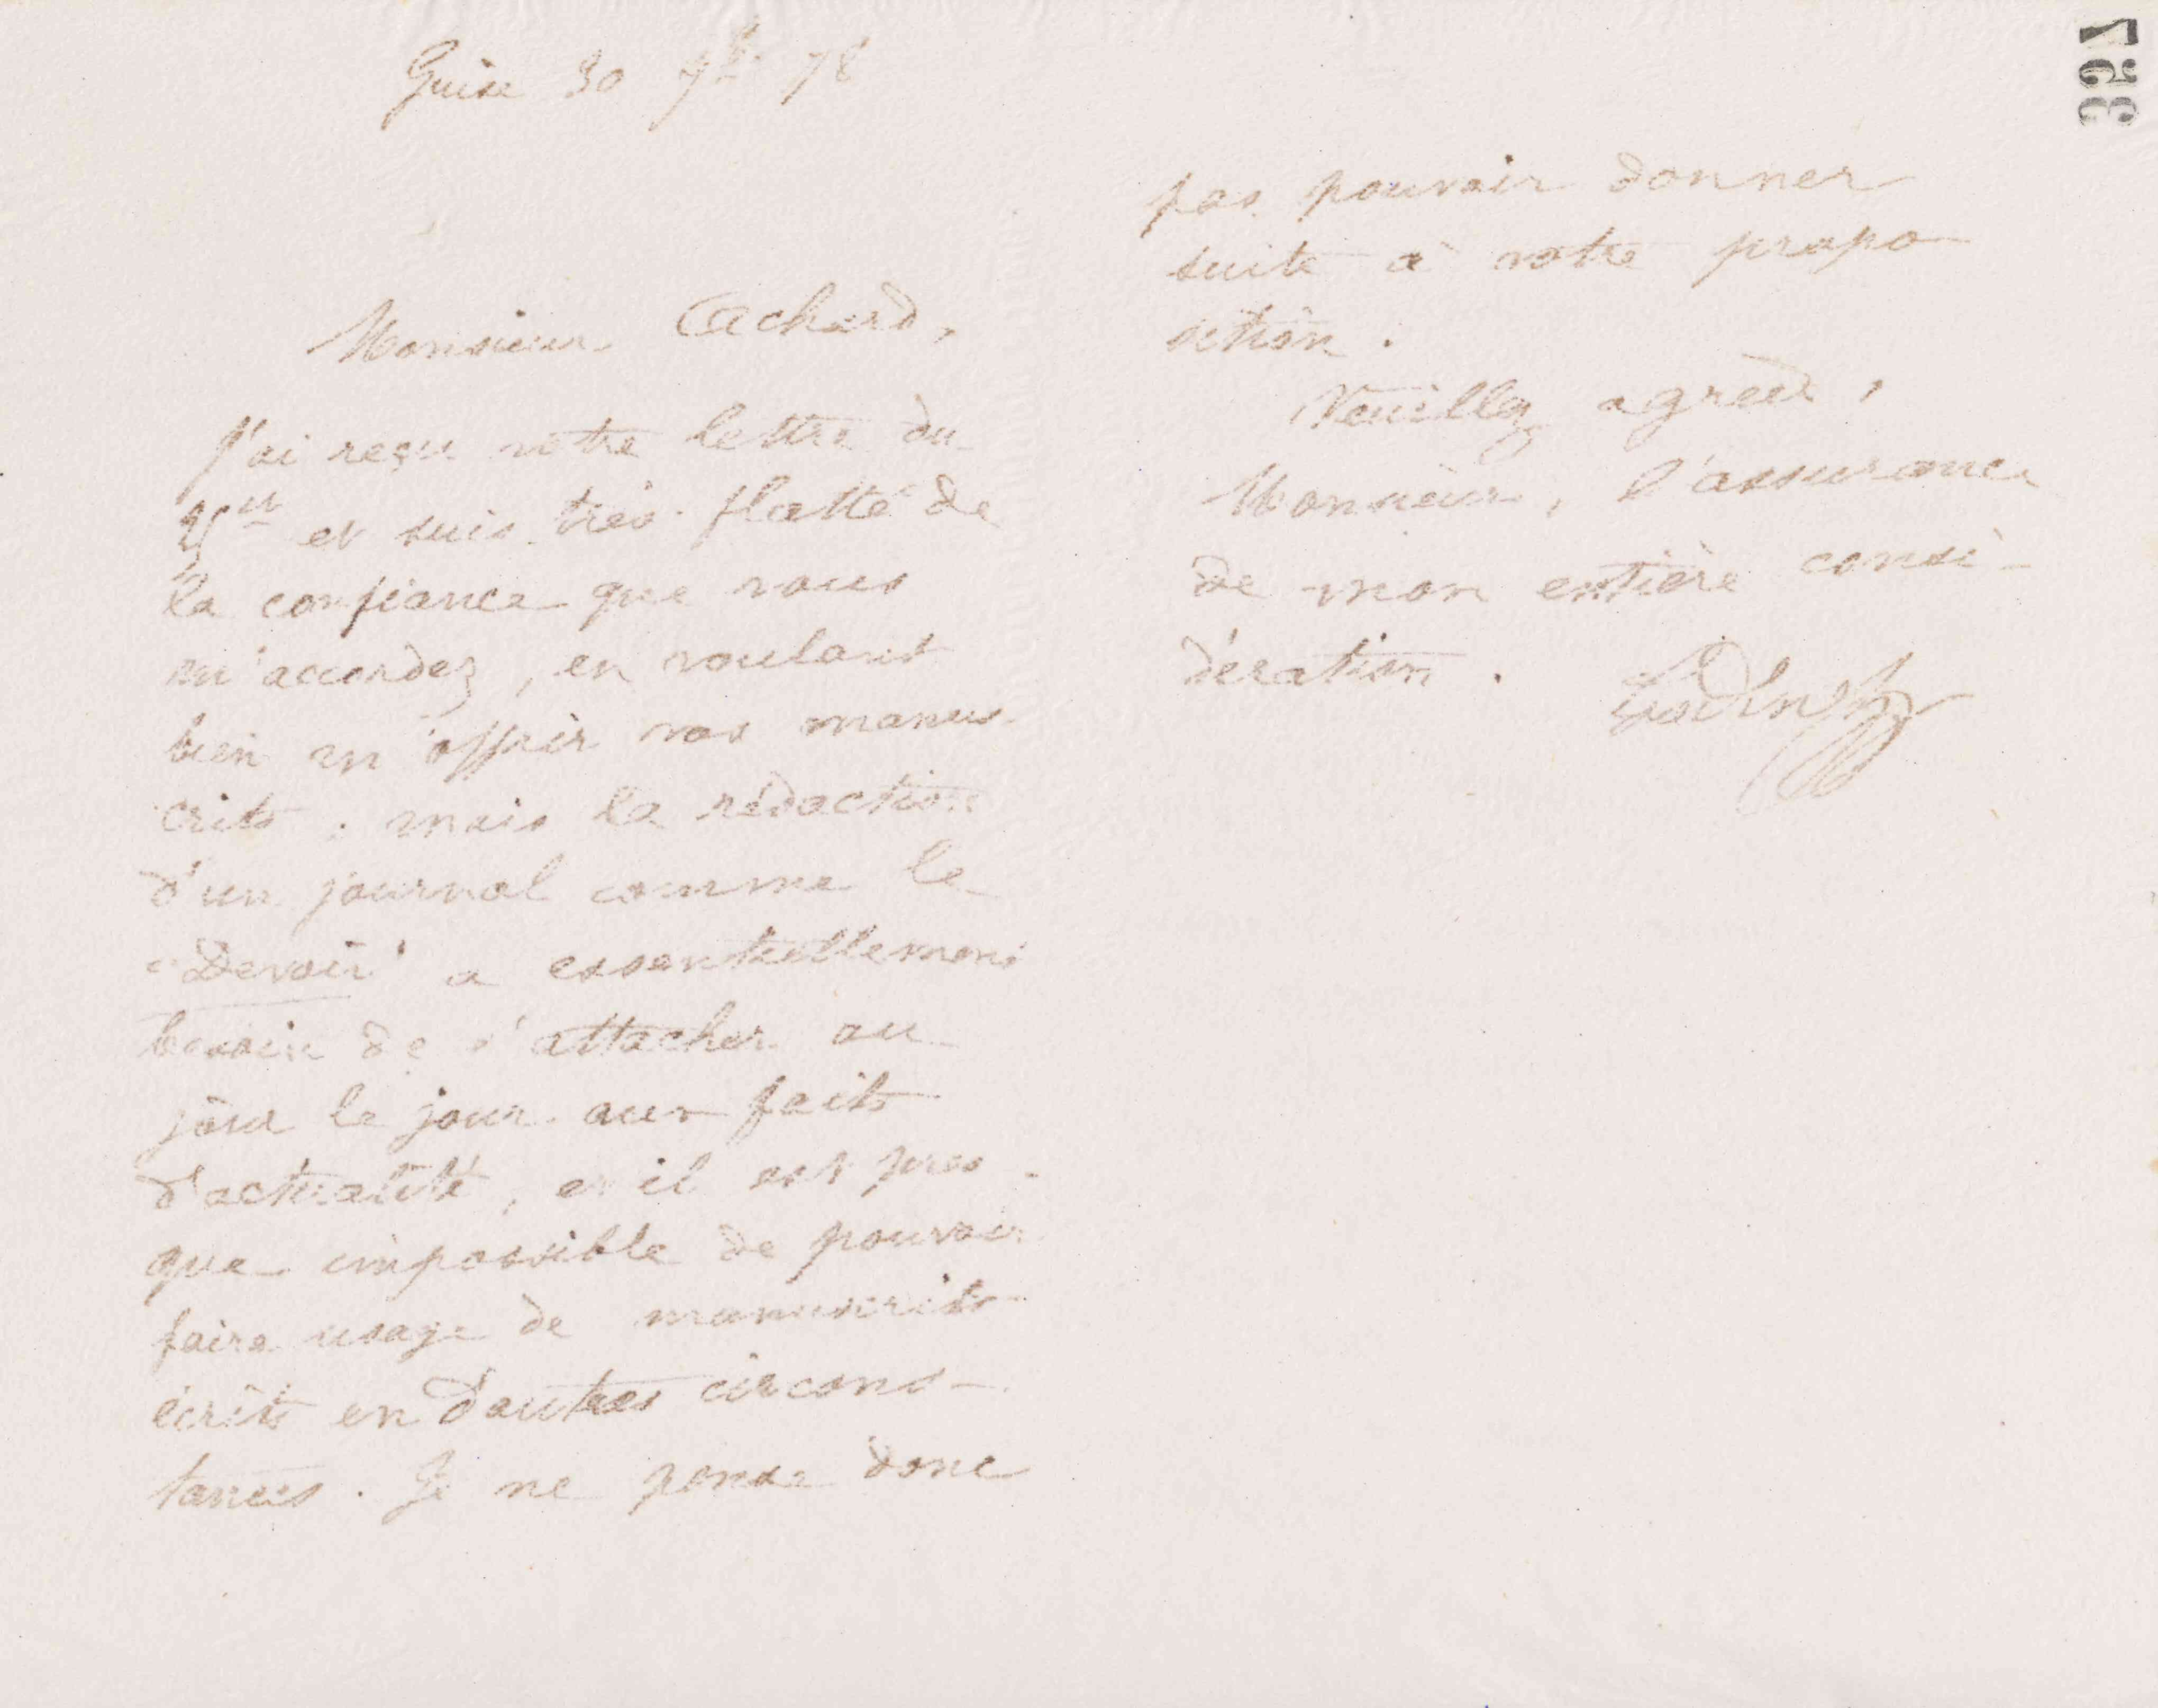 Guise 30 7bre 78
Monsieur Cachard,
J'ai reçu votre lettre du
et suis très flatté de
la confiance que vous
m'accordez, en voulant
bien m'offrir vos manus-
crits, mais la rédaction
d'un journal comme le
"Devoir" a essentiellement
besoin de s'attacher au
jour le jour aux faits
d'actualité, et il est pres-
que impossible de pouvoir
faire usage de manuscrits
écrits en d'autres circons-
tances. Je ne pense donc
pas pouvoir donner
suite à votre propo
sition.
Veuillez agréer,
Monsieur, l'assurance
de mon entière consi-
dération.
Godin
327